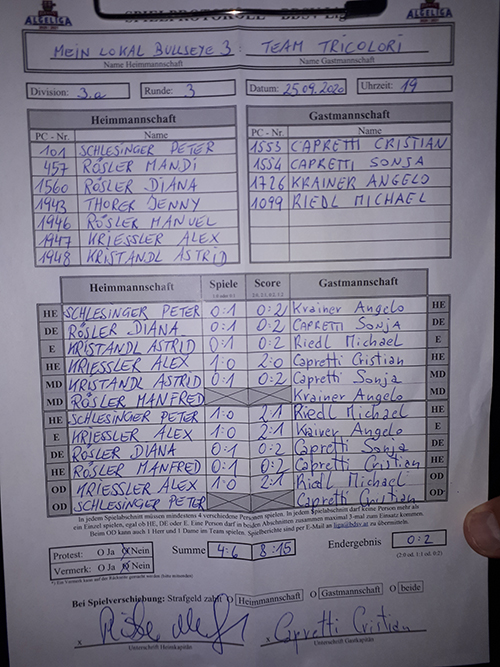 ALSELIGA SPIELPROTOKOLL BDSV Liga ALSELIGA
MEIN LOKAL BULLSEYE 3 : TEAM TRICOLORI
Name Heimmannschaft Name Gastmannschaft
Division: 3.a Runde: 3 Datum: 25.09.2020 Uhrzeit: 19
Heimmannschaft Gastmannschaft
PC - Nr. Name PC - Nr. Name
101 SCHLESINGER PETER 1553 CAPRETTI CRISTIAN
457 RÖSLER MANDI 1554 CAPRETTI SONJA
1560 RÖSLER DIANA 1726 KRAINER ANGELO
1943 THORER JENNY 1099 RIEDL MICHAEL
1946 RÖSLER MANUEL
1947 KRIESSLER ALEX
1948 KRISTANDL ASTRID
Heimmannschaft Spiele Score Gastmannschaft
HE SCHLESINGER PETER 0:1 0:2 Krainer Angelo HE
DE RÖSLER DIANA 0:1 0:2 CAPRETTI Sonja DE
E KRISTANDL ASTRID 0:1 0:2 Riedl Michael E
HE KRIESSLER ALEX 1:0 2:0 Capretti Cristian HE
MD KRISTANDL ASTRID 0:1 0:2 Capretti Sonja MD
MD RÖSLER MANFRED Krainer Angelo MD
HE SCHLESINGER PETER 1:0 2:1 Riedl Michael HE
E KRIESSLER ALEX 1:0 2:1 Krainer Angelo E
DE RÖSLER DIANA 0:1 0:2 Capretti Sonja DE
HE RÖSLER MANFRED 0:1 0:2 Capretti Cristian HE
OD KRIESSLER ALEX 1:0 2:1 Riedl Michael OD
OD SCHLESINGER PETER Capretti Cristian OD
In jedem Spielabschnitt müssen mindestens 4 verschiedene Personen spielen. In jedem Spielabschnitt darf eine Person nicht mehr als
ein Einzel spielen, egal ob HE, DE oder E. Eine Person darf in beiden Abschnitten zusammen maximal 3-mal zum Einsatz kommen.
Beim OD kann auch 1 Herr und 1 Dame im Team spielen. Spielberichte sind per E-Mail an zu übermitteln.
Protest: O Ja O Nein Summe 4:6 8:15 Endergebnis 0:2
Vermerk: O Ja O Nein (2:0 od. 1:1 od. 0:2)
Bei Spielverschiebung: Strafgeld zahlt O Heimmannschaft O Gastmannschaft O beide
x x Capretti Cristian
Unterschrift Heimkapitän Unterschrift Gastkapitän